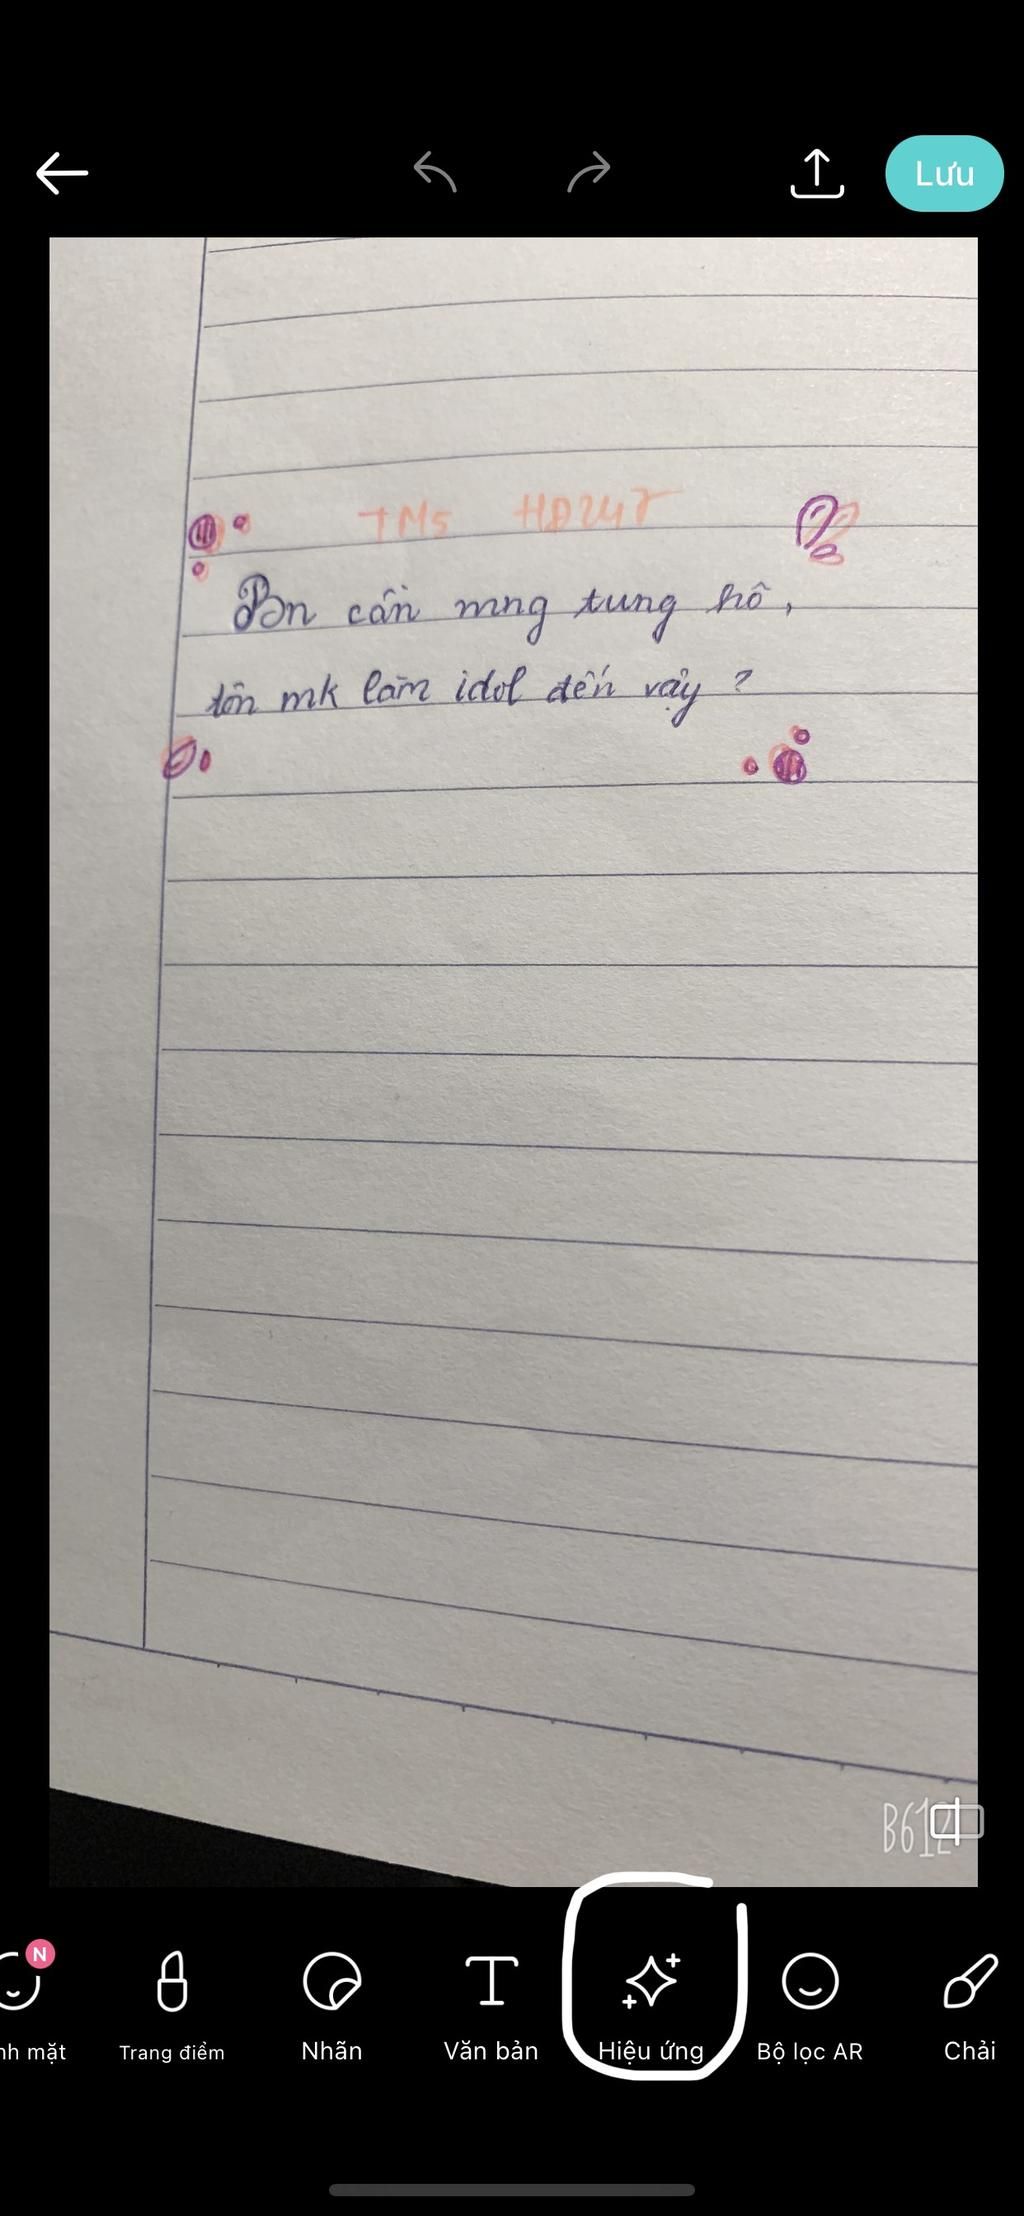 Lưu
TM5 HD247
Bạn cần mng tung hô,
tôn mk làm idol đến vậy?
B612
N
nh mặt
Trang điểm
Nhãn
Văn bản
Hiệu ứng
Bộ lọc AR
Chải